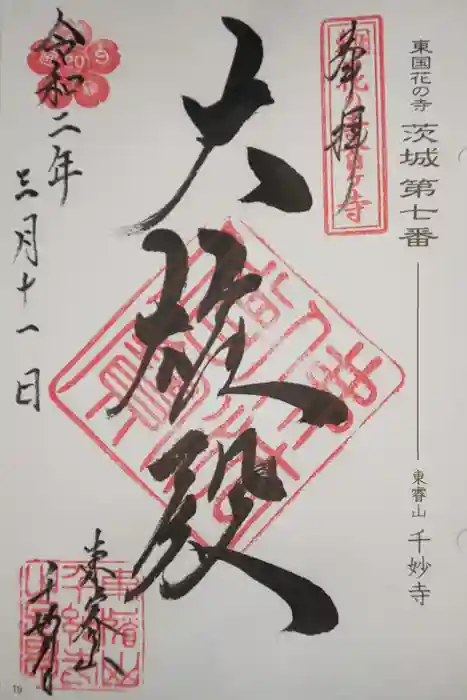 東国花の寺 茨城 第七番
東睿山 千妙寺
奉拝
大雄殿
令和二年
三月十一日
東睿山
千妙寺
19